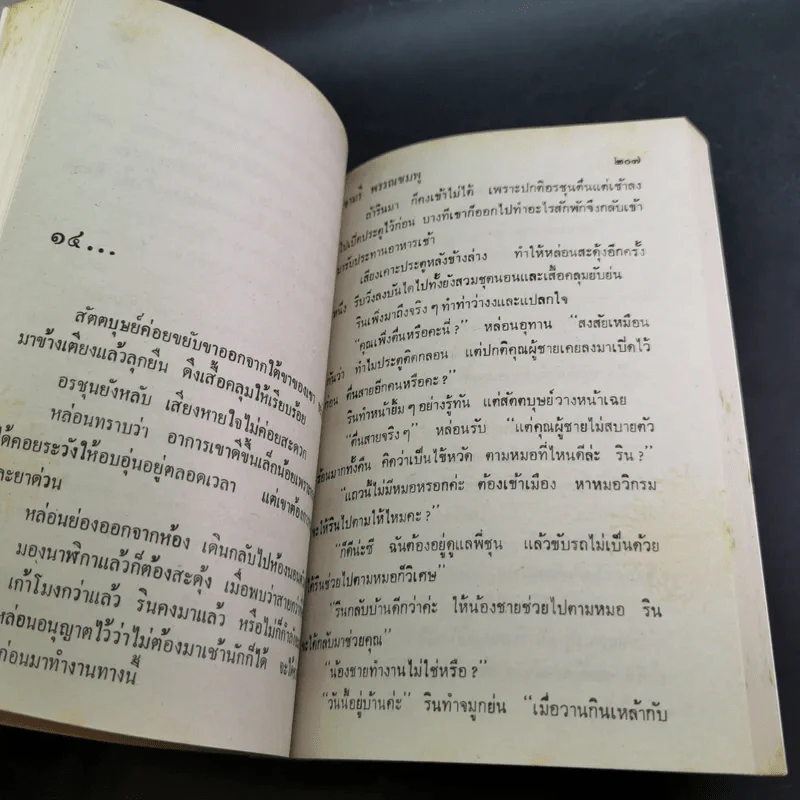 ๑๔...
สัตตบุษย์ค่อยขยับขาออกจากใต้ขาของเขา
มาข้างเตียงแล้วลุกยืน ดึงเสื้อคลุมให้เรียบร้อย
อรชุนยังหลับ เสียงหายใจไม่ค่อยสะดวก
หล่อนทราบว่า อาการเขาดีขึ้นเล็กน้อยเพราะ
ได้คอยระวังให้อบอุ่นอยู่ตลอดเวลา แต่เขาต้อง
และยาด่วน
หล่อนย่องออกจากห้อง เดินกลับไปห้องนอน
มองนาฬิกาแล้วก็ต้องสะดุ้ง เมื่อพบว่าสายกว่า
เก้าโมงกว่าแล้ว รินคงมาแล้ว หรือไม่ก็กำลัง
หล่อนอนุญาตไว้ว่าไม่ต้องมาเช้านักก็ได้ จะได้
ก่อนมาทำงานทางนี้
พรรณชมพู ๒๐๗
ถ้ารินมา ก็คงเข้าไม่ได้ เพราะปกติอรชุนตื่นแต่เช้าลง
ไปเปิดประตูไว้ก่อน บางทีเขาก็ออกไปทำอะไรสักพักจึงกลับเข้า
มารับประทานอาหารเช้า
เสียงเคาะประตูหลังข้างล่าง ทำให้หล่อนสะดุ้งอีกครั้ง
หนึ่ง รีบวิ่งลงบันไดไปทั้งยังสวมชุดนอนและเสื้อคลุมยับย่น
รินเพิ่งมาถึงจริง ๆ ทำท่าว่างงและแปลกใจ
“คุณเพิ่งตื่นหรือคะนี่ ?” หล่อนอุทาน “สงสัยเหมือน
กันว่า ทำไมประตูติดกลอน แต่ปกติคุณผู้ชายเคยลงมาเปิดไว้
ก่อน ตื่นสายอีกคนหรือคะ ?”
รินทำหน้ายิ้ม ๆ อย่างรู้ทัน แต่สัตตบุษย์วางหน้าเฉย
“ตื่นสายจริง ๆ” หล่อนรับ “แต่คุณผู้ชายไม่สบายตัว
ร้อนมากทั้งคืน คิดว่าเป็นไข้หวัด ตามหมอที่ไหนดีล่ะ ริน ?”
“แถวนี้ไม่มีหมอหรอกค่ะ ต้องเข้าเมือง หาหมอวิกรม
จะให้รินไปตามให้ไหมคะ ?”
“ก็ดีน่ะซี ฉันต้องอยู่ดูแลพี่ชุน แล้วขับรถไม่เป็นด้วย
ได้รินช่วยไปตามหมอก็วิเศษ”
“รินกลับบ้านดีกว่าค่ะ ให้น้องชายช่วยไปตามหมอ ริน
จะได้กลับมาช่วยคุณ”
“น้องชายทำงานไม่ใช่หรือ ?”
“วันนี้อยู่บ้านค่ะ” รินทำจมูกย่น “เมื่อวานกินเหล้ากับ